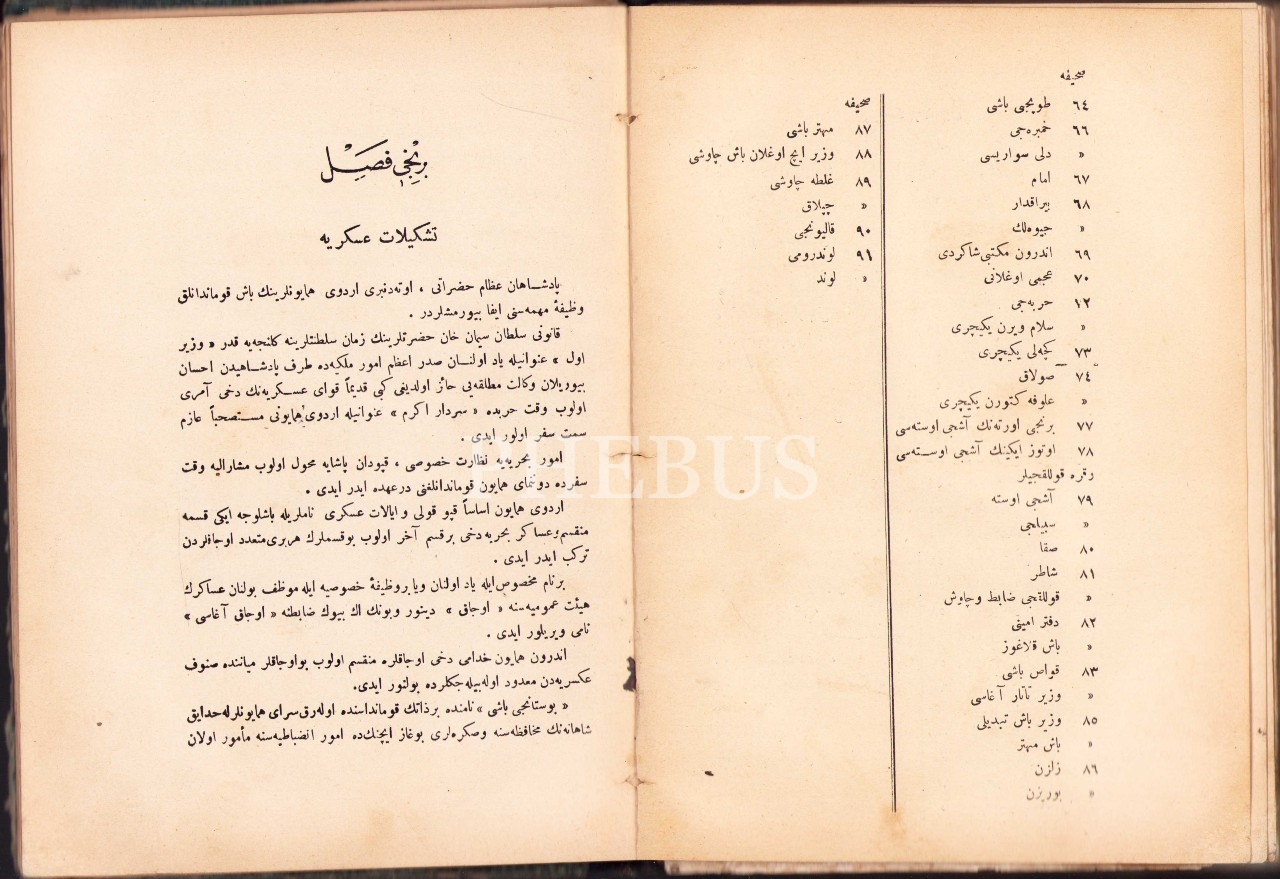 صحیفه
٦٤ طوپجی باشی
٦٦ خمبره‌جی
» دلی سواریسی
٦٧ امام
٦٨ بیراقدار
» جبوه‌لك
٦٩ اندرون مكتبی شاكردی
٧٠ عجمی اوغلانی
١٢ حربه‌جی
» سلام ویرن یكیچری
٧٣ كچه‌لی یكیچری
٧٤ صولاق
» علوفه كتورن یكیچری
٧٧ برنجی اورته‌نك آشجی اوسته‌سی
٧٨ اوتوز ایكینك آشجی اوسته‌سی
رقره قوللقجیلر
٧٩ آشجی اوسته
» سبیلجی
٨٠ صقا
٨١ شاطر
» قوللقجی ضابط وچاوش
٨٢ دفتر امینی
» باش قلاغوز
٨٣ قواص باشی
» وزیر تاتار آغاسی
٨٥ وزیر باش تبدیلی
» باش مهتر
٨٦ زلزن
» بوریزن
صحیفه
٨٧ مهتر باشی
٨٨ وزیر ایچ اوغلان باش چاوشی
٨٩ غلطه چاوشی
» چپلاق
٩٠ قالیونجی
٩١ لوندرومی
» لوند
برنجی فصل
تشكیلات عسكریه
پادشاهان عظام حضراتی ، اوته‌دنبری اردوی همایونلرینك باش قوماندانلق
وظیفهٔ مهمه‌سنی ایفا بیورمشلردر .
قانونی سلطان سیمان خان حضرتلرینك زمان سلطنتلرینه كلنجه‌یه قدر « وزیر
اول » عنوانیله یاد اولنان صدر اعظم امور ملكیه‌ده طرف پادشاهیدن احسان
بیوریلان وكالت مطلقه‌یی حائز اولدیغی كبی قدیماً قوای عسكریه‌نك دخی آمری
اولوب وقت حربده « سردار اكرم » عنوانیله اردوی همایونی مستصحباً عازم
سمت سفر اولور ایدی .
امور بحریه‌یه نظارت خصوصی ، قپودان پاشایه محول اولوب مشارالیه وقت
سفرده دونمای همایون قوماندانلغنی درعهده ایدر ایدی .
اردوی همایون اساساً قپو قولی و ایالات عسكری ناملریله باشلوجه ایكی قسمه
منقسم وعساكر بحریه دخی برقسم آخر اولوب بوقسملرك هربری متعدد اوجاقلردن
تركب ایدر ایدی .
برنام مخصوص ایله یاد اولنان ویا بروظیفهٔ خصوصیه ایله موظف بولنان عساكرك
هیئت عمومیه‌سنه « اوجاق » دینور وبونك اك بیوك ضابطنه « اوجاق آغاسی »
نامی ویریلور ایدی .
اندرون همایون خدامی دخی اوجاقلره منقسم اولوب بواوجاقلر میاننده صنوف
عكسریه‌دن معدود اوله‌بیله‌جكلرده بولنور ایدی.
« بوستانجی باشی » نامنده برذاتك قومانداسنده اوله‌رق سرای همایونلرله حدایق
شاهانه‌نك محافظه‌سنه وصكره‌لری بوغاز ایچنك‌ده امور انضباطیه‌سنه مأمور اولان
PHEBUS